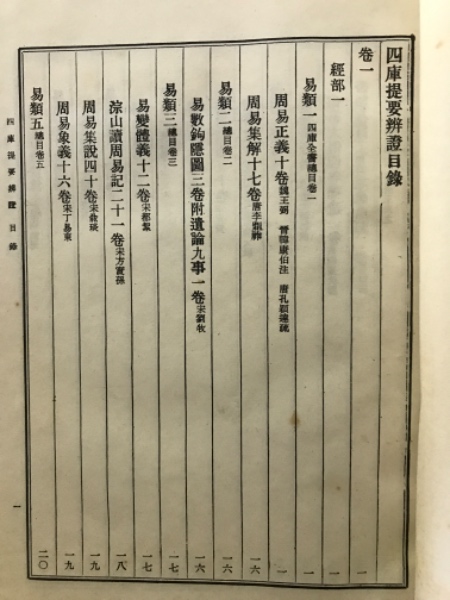 四庫提要辨證目錄
卷一 一
經部一 一
易類一 四庫全書總目卷一 一
周易正義十卷 魏王弼 晉韓康伯注 唐孔穎達疏 一
周易集解十七卷 唐李鼎祚 一六
易類二 總目卷二 一六
易數鉤隱圖三卷附遺論九事一卷 宋劉牧 一六
易類三 總目卷三 一七
易變體義十二卷 宋都絜 一七
淙山讀周易記二十一卷 宋方實孫 一八
周易集說四十卷 宋俞琰 一九
周易象義十六卷 宋丁易東 一九
易類五 總目卷五 二〇
四庫提要辨證 目錄 一